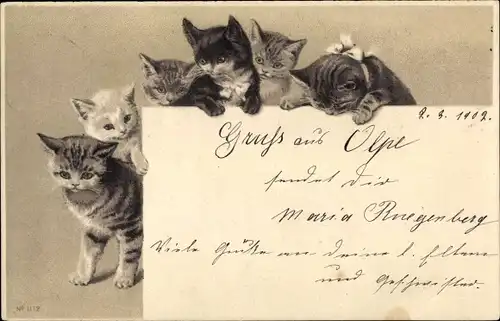 2. 3. 1902.
Gruß aus Olpe
sendet Dir
Maria Ruegenberg
Viele Grüße an deine l. Eltern
und Geschwister.